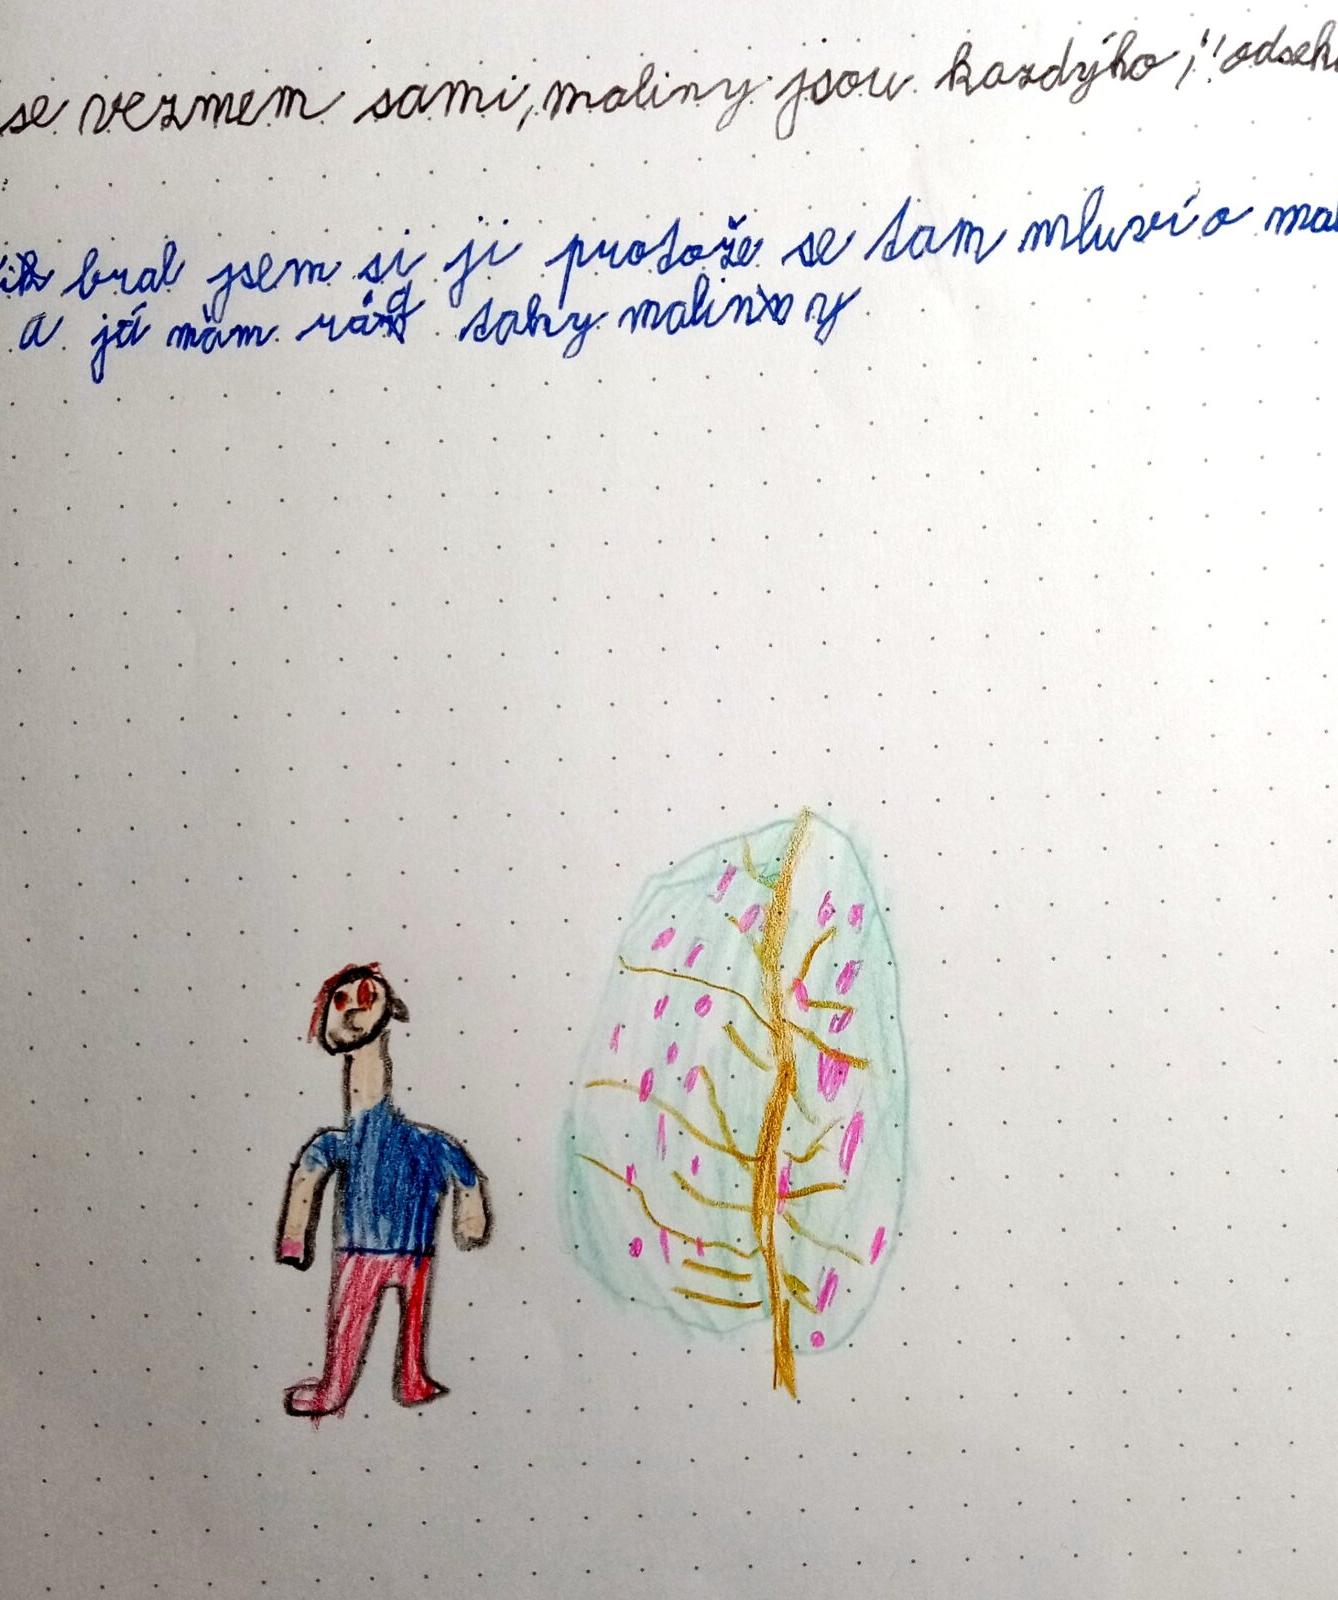 se vezmem sami, maliny jsou kazdýho," odsek
ik bral jsem si ji protože se tam mluví o mal
a já mám rád taky maliny